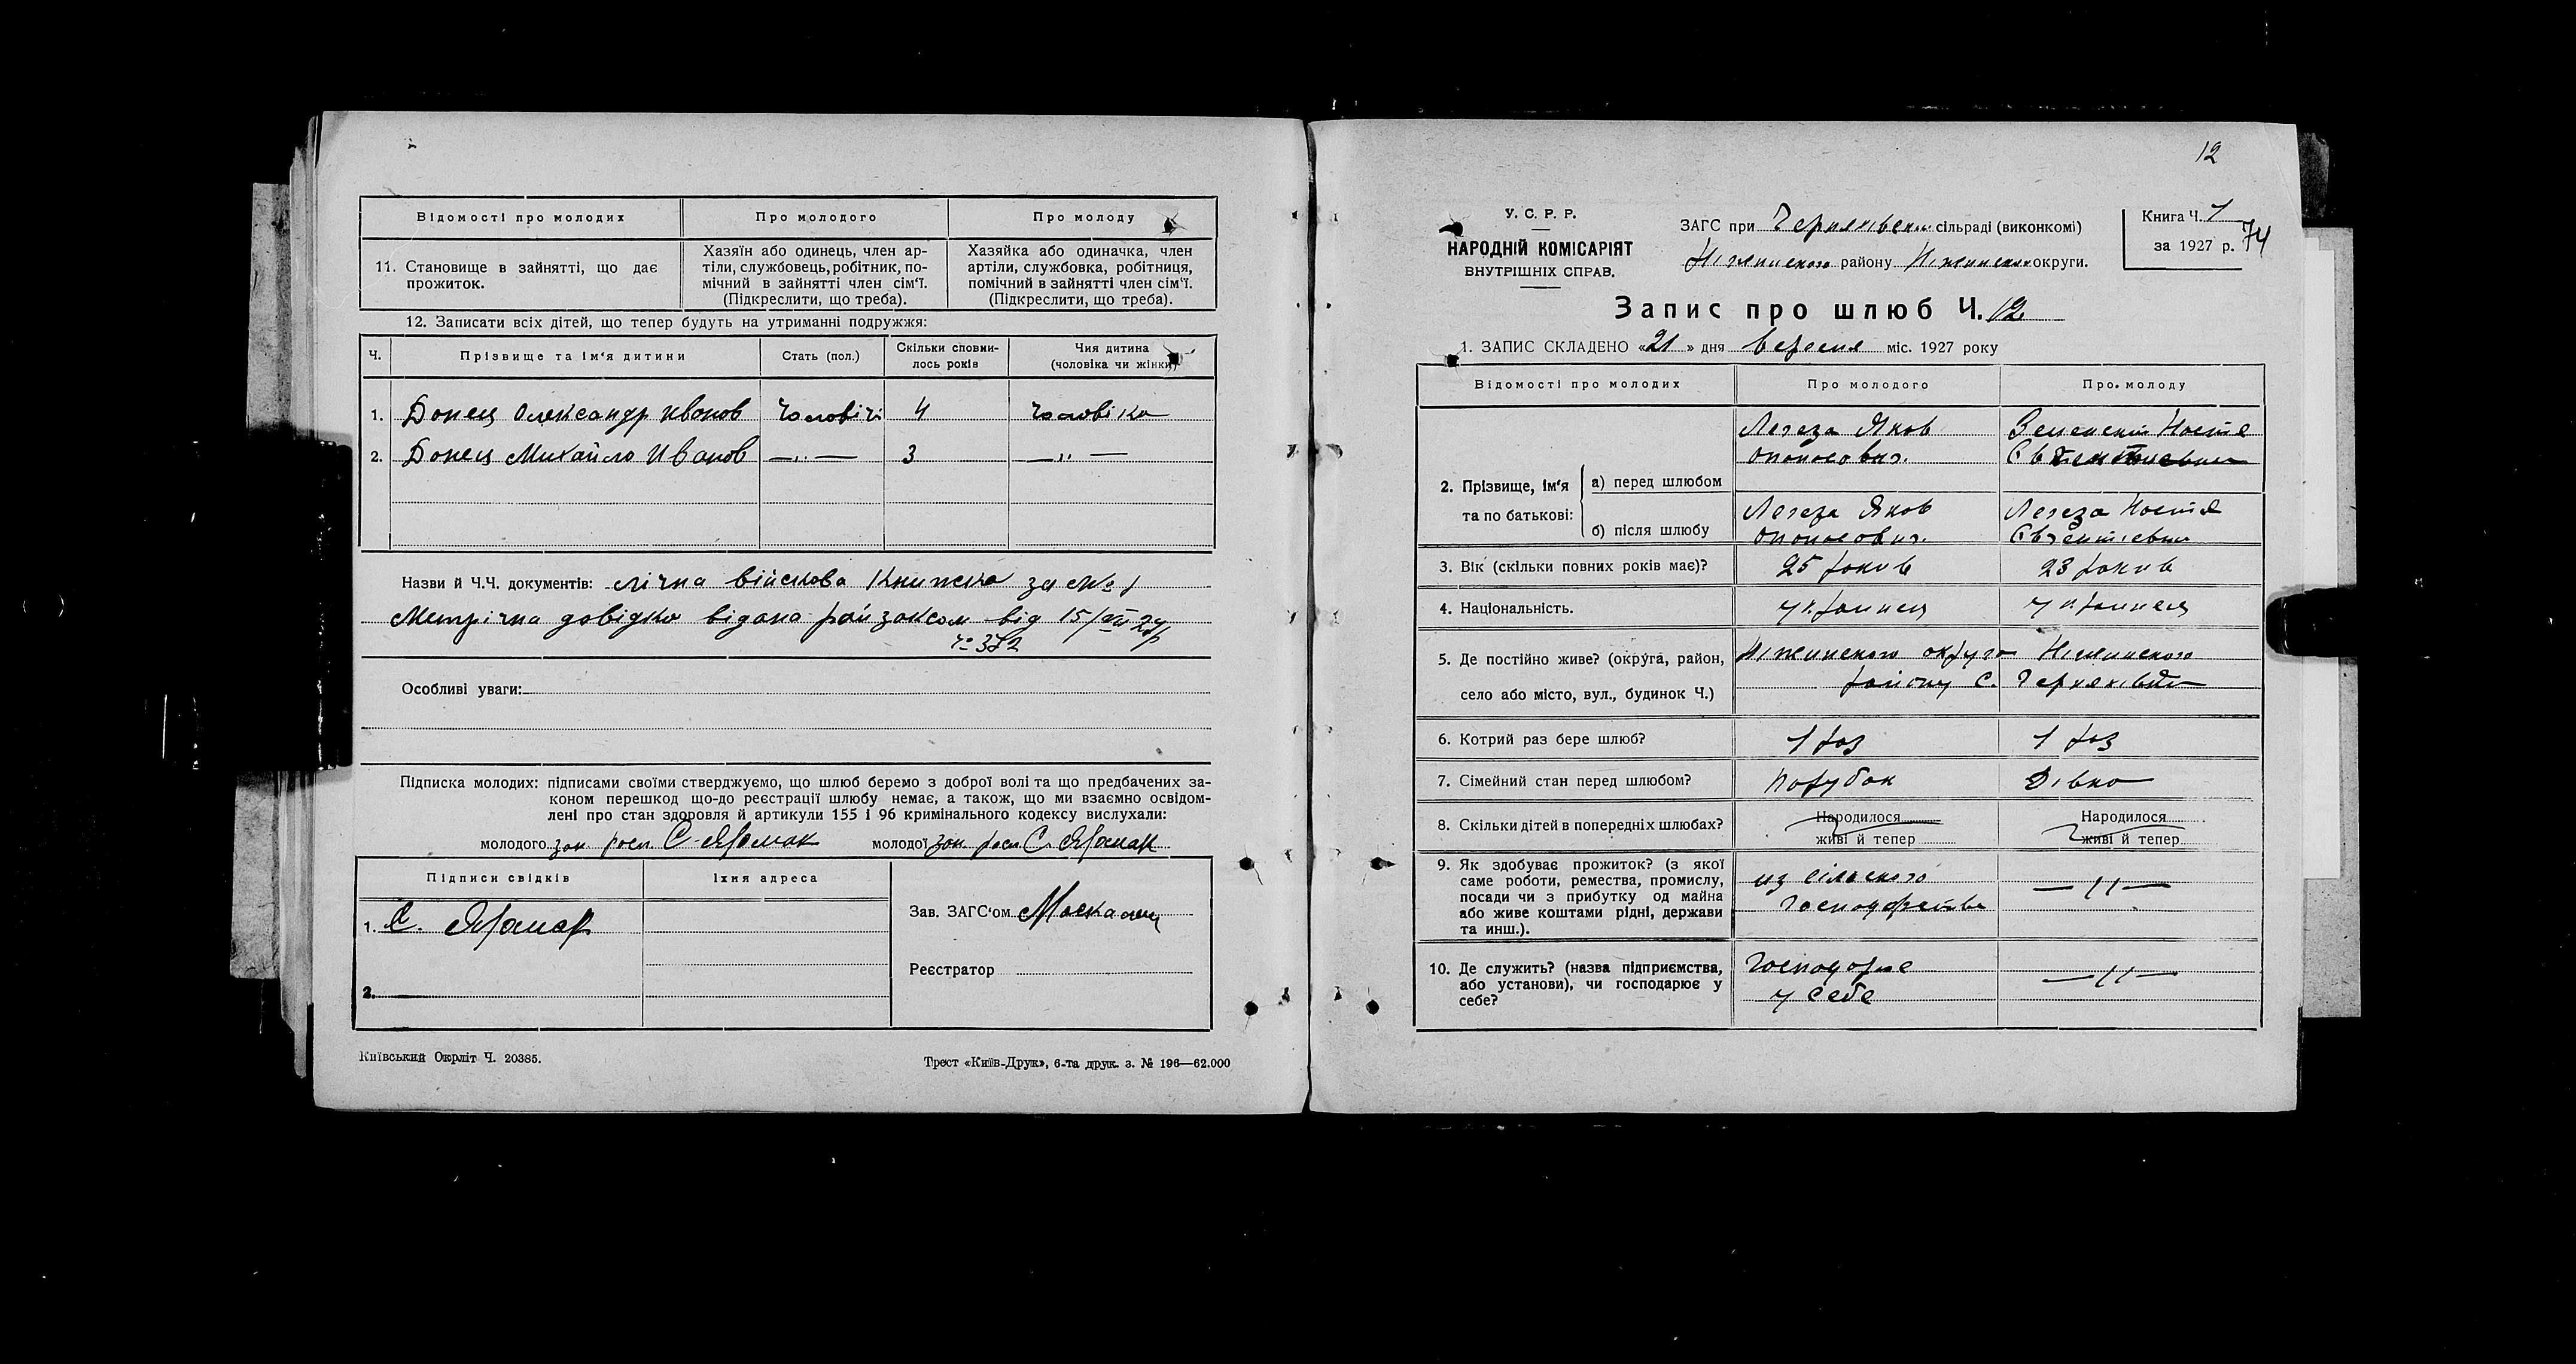 Відомості про молодих Про молодого Про молоду
11. Становище в зайнятті, що дає прожиток.
Хазяїн або одинець, член ар-
тіли, службовець, робітник, по-
мічний в зайнятті член сім'ї.
(Підкреслити, що треба).
Хазяйка або одиначка, член
артіли, службовка, робітниця,
помічний в зайнятті член сім'ї.
(Підкреслити, що треба).
12. Записати всіх дітей, що тепер будуть на утриманні подружжя:
Ч. Прізвище та ім'я дитини Стать (пол.) Скільки сповни-лось років Чия дитина (чоловіка чи жінки)
1. Донец Олександр Иванов Чоловічі 4 Чоловіка
2. Донец Михайло Иванов —„— 3 —„—
Назви й Ч.Ч. документів: лічна війскова Книжка за № 1
Метрічна довідка відана райзаксом від 15/VII 27р
Ч 372
Особливі уваги:
Підписка молодих: підписами своїми стверджуємо, що шлюб беремо з доброї волі та що предбачених за-
коном перешкод що-до реєстрації шлюбу немає, а також, що ми взаємно освідом-
лені про стан здоровля й артикули 155 і 96 кримінального кодексу вислухали:
молодого С. молодої С.
Підписи свідків Їхня адреса
1. С.
2.
Зав. ЗАГС'ом Москалец
Реєстратор
Київський Окрліт Ч. 20385.
Трест «Київ-Друк», 6-та друк. з. № 196—62.000
12
У. С. Р. Р.
НАРОДНІЙ КОМІСАРІЯТ
ВНУТРІШНІХ СПРАВ.
ЗАГС при сільраді (виконкомі)
Ніжинского району Ніжинскои округи.
Книга Ч. 1
за 1927 р. 74
Запис про шлюб Ч. 12
1. ЗАПИС СКЛАДЕНО «21» дня Вересня міс. 1927 року
Відомості про молодих Про молодого Про молоду
2. Прізвище, ім'я та по батькові:
а) перед шлюбом
Легеза Яков
Опонасович
Настя
б) після шлюбу
Легеза Яков
Опонасович
Легеза Настя
3. Вік (скільки повних років має)? 25 років 23 років
4. Національність. украинец украинец
5. Де постійно живе? (округа, район,
село або місто, вул., будинок Ч.)
Ніжинского округа Ніжинского
району С. Черняхівка
6. Котрий раз бере шлюб? 1 раз 1 раз
7. Сімейний стан перед шлюбом? Парубок Дівка
8. Скільки дітей в попередніх шлюбах? Народилося живі й тепер Народилося живі й тепер
9. Як здобуває прожиток? (з якої
саме роботи, ремества, промислу,
посади чи з прибутку од майна
або живе коштами рідні, держави
та инш.).
из сільского
господарства
—„—
10. Де служить? (назва підприємства,
або установи), чи господарює у
себе?
Господарює
у себе
—„—